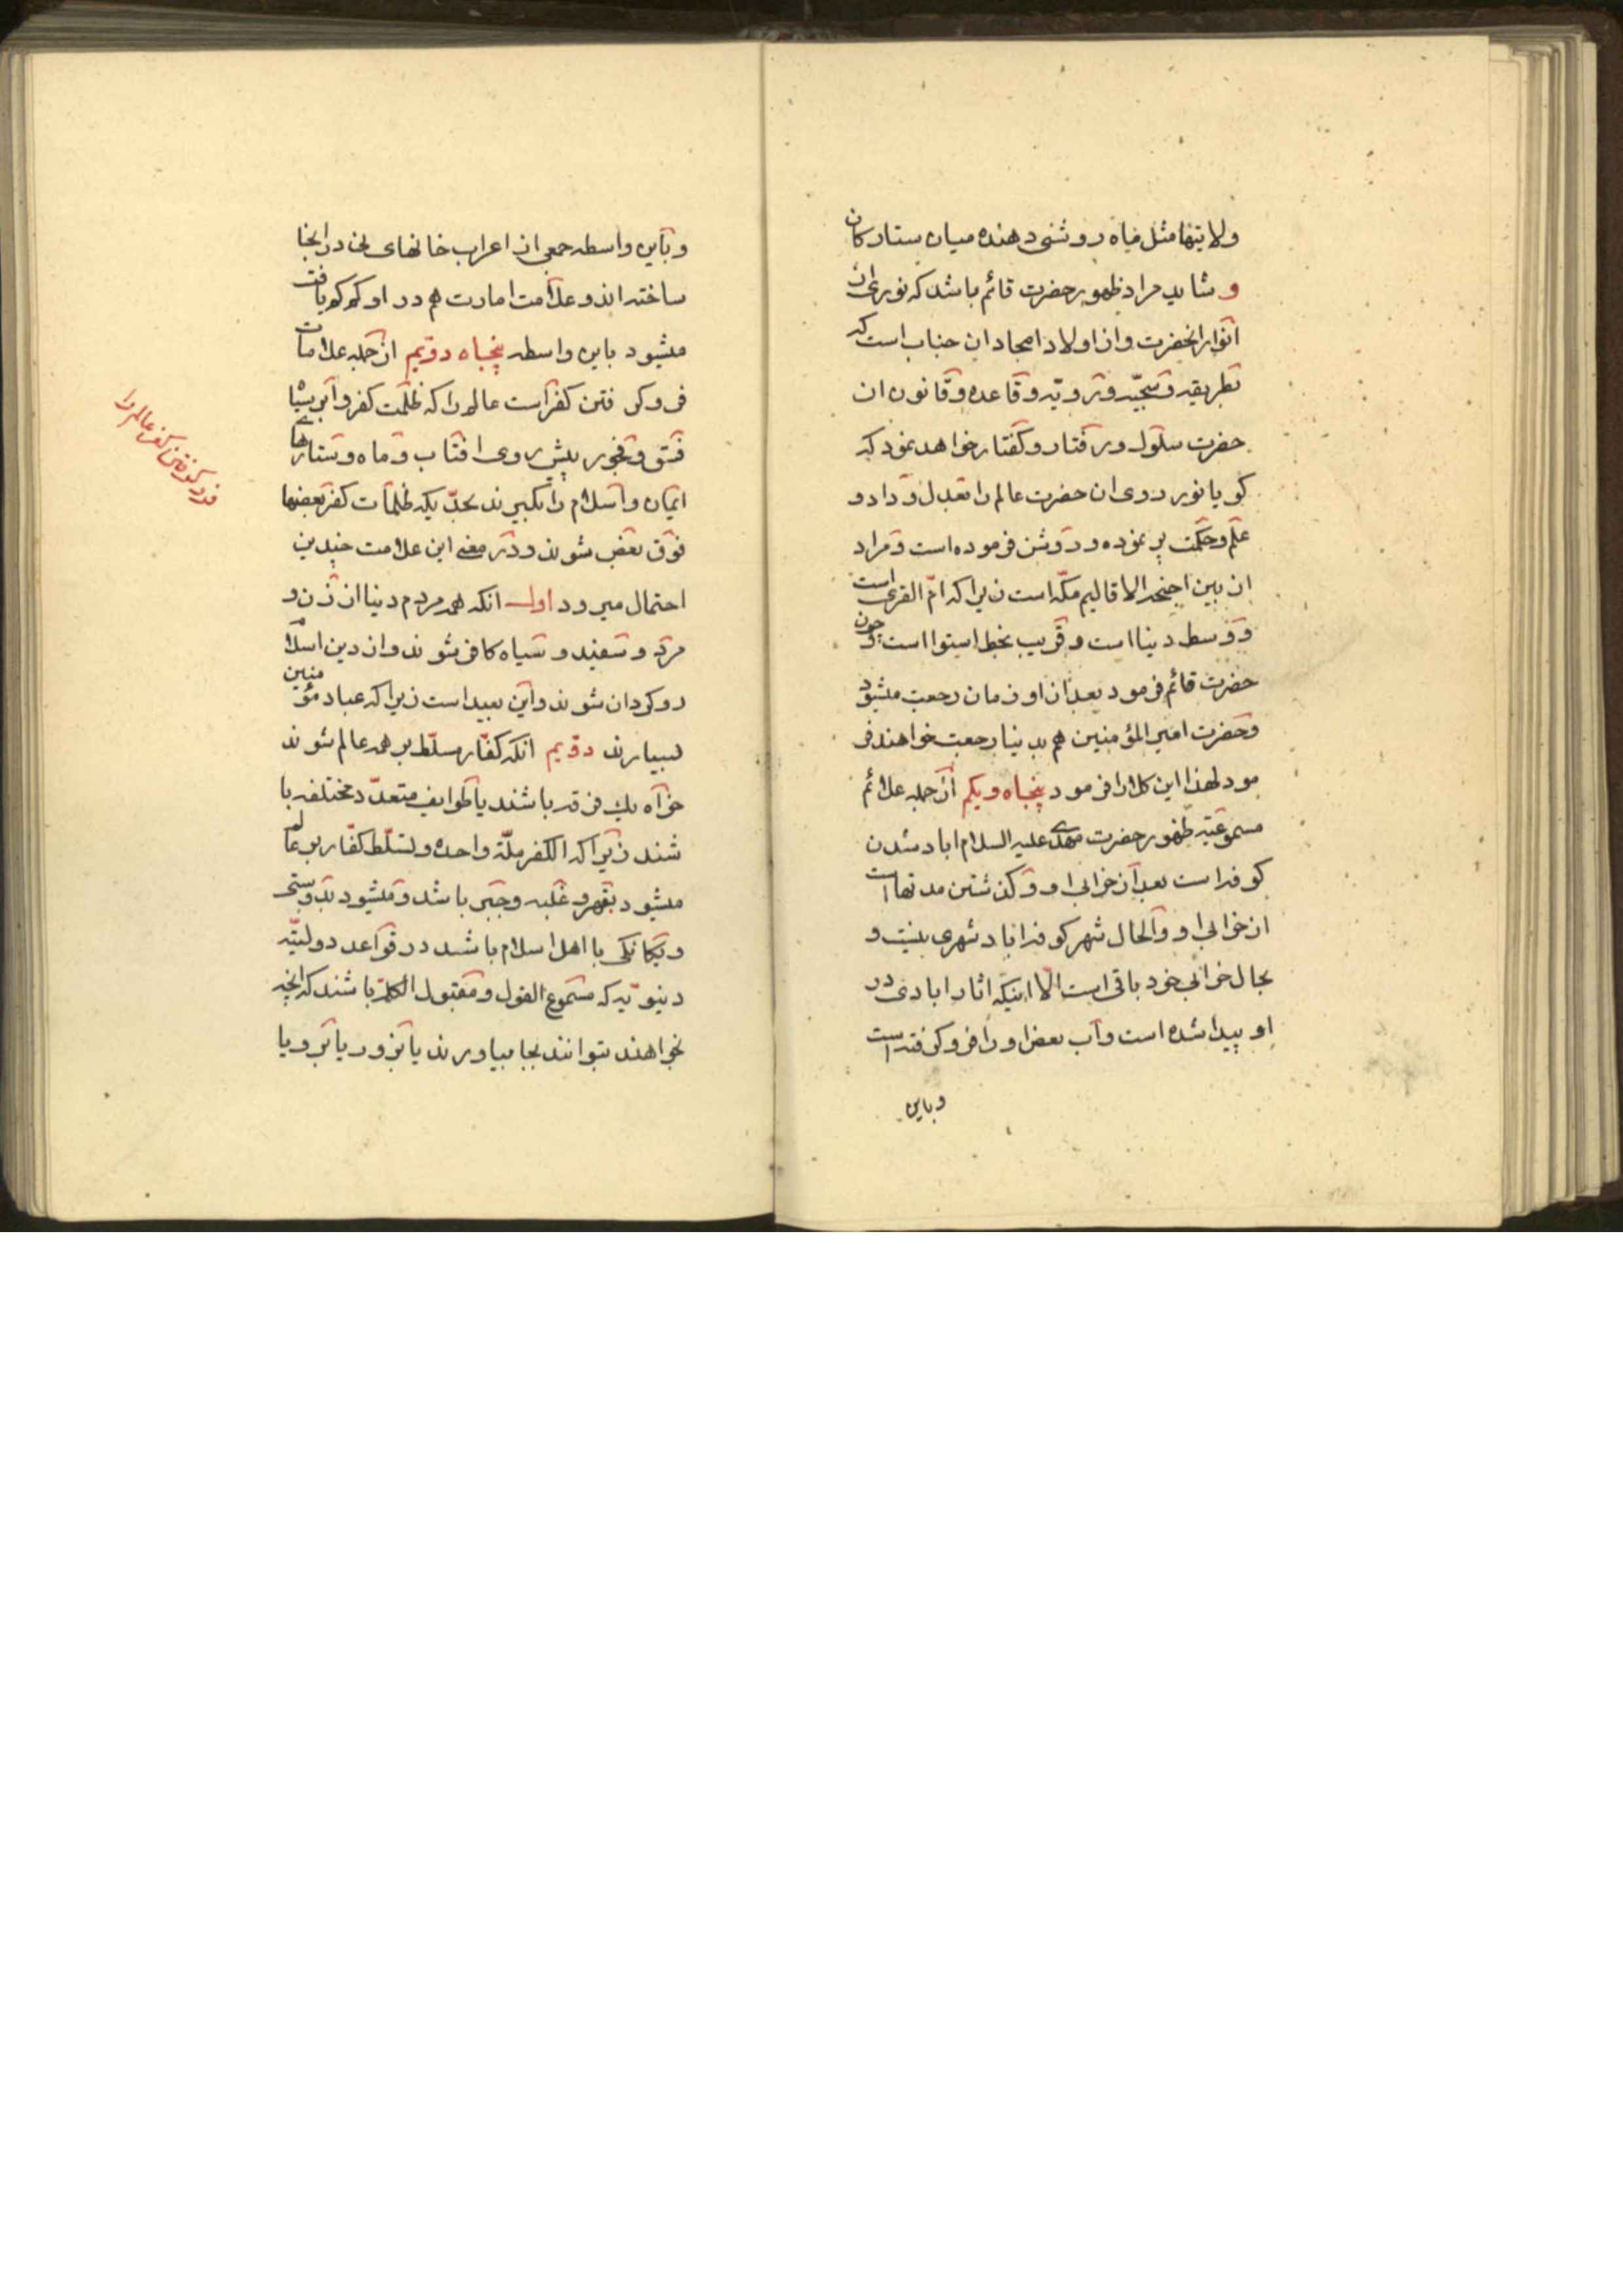 ولایتها مثل ماه روشنی دهنده میان ستارکان
و شاید مراد ظهور حضرت قائم باشد که نوری از ان
انوار انحضرت و از اولاد امجاد ان جناب است که
بطریقه و سجیّه و رویّه و قاعده و قانون ان
حضرت سلوک و رفتار و کفتار خواهد نمود که
کویا نور روی ان حضرت عالم را بعدل و داد و
علم و حکمت پر نموده و روشن فرموده است و مراد
از بین اجنحة الاقالیم مکّه است زیرا که امّ القری است
و وسط دنیا است و قریب بخط استوا است و چون
حضرت قائم فرمود بعد از او زمان رجعت میشود
و حضرت امیر المؤمنین هم بدنیا رجعت خواهند فر
مود لهذا این کلام را فرمود پنجاه و یکم از جمله علائم
مسموعیّه ظهور حضرت مهدی علیه السلام اباد شدن
کوفه است بعد از خرابی او و کذشتن مدتها است
از خرابی او و الحال شهر کوفه اباد شهری نیست و
بحال خرابی خود باقی است الّا اینکه اثار ابادی در
او پیدا شده است و آب بعض او را فرو کرفته است
و باین
و باین واسطه جمعی از اعراب خانهای در انجا
ساخته اند و علامت امارت هم در او کم کم یافت
میشود باین واسطه پنجاه دویم از جمله علامات
فرو کرفتن کفر است عالم را که ظلمت کفر و ابر سیاه
فسق و فجور پیش روی افتاب و ماه و ستارهای
ایمان و اسلام را بکیرند بحدّیکه ظلمات کفر بعضها
فوق بعض شوند و در معنی این علامت چندین
احتمال میرود اول انکه همه مردم دنیا از زن و
مرد و سفید و سیاه کافر شوند و از دین اسلام
روکردان شوند و این بعید است زیرا که عباد مؤمنین
بسیارند دویم انکه کفّار مسلّط بر همه عالم شوند
خواه یک فرقه باشند یا طوایف متعدّد مختلفه با
شند زیرا که الکفر ملّة واحدة و تسلّط کفّار بر عالم
میشود بقهر و غلبه و جبر باشد و میشود بدوستی
و یکانکی با اهل اسلام باشد در قواعد دولتیّه
دنیویّه که مسموع القول و مقبول الکلمه باشند که انچه
بخواهند بتوانند بجا بیاورند یا بزور یا بزر و یا
فرو کرفتن کفر عالم را